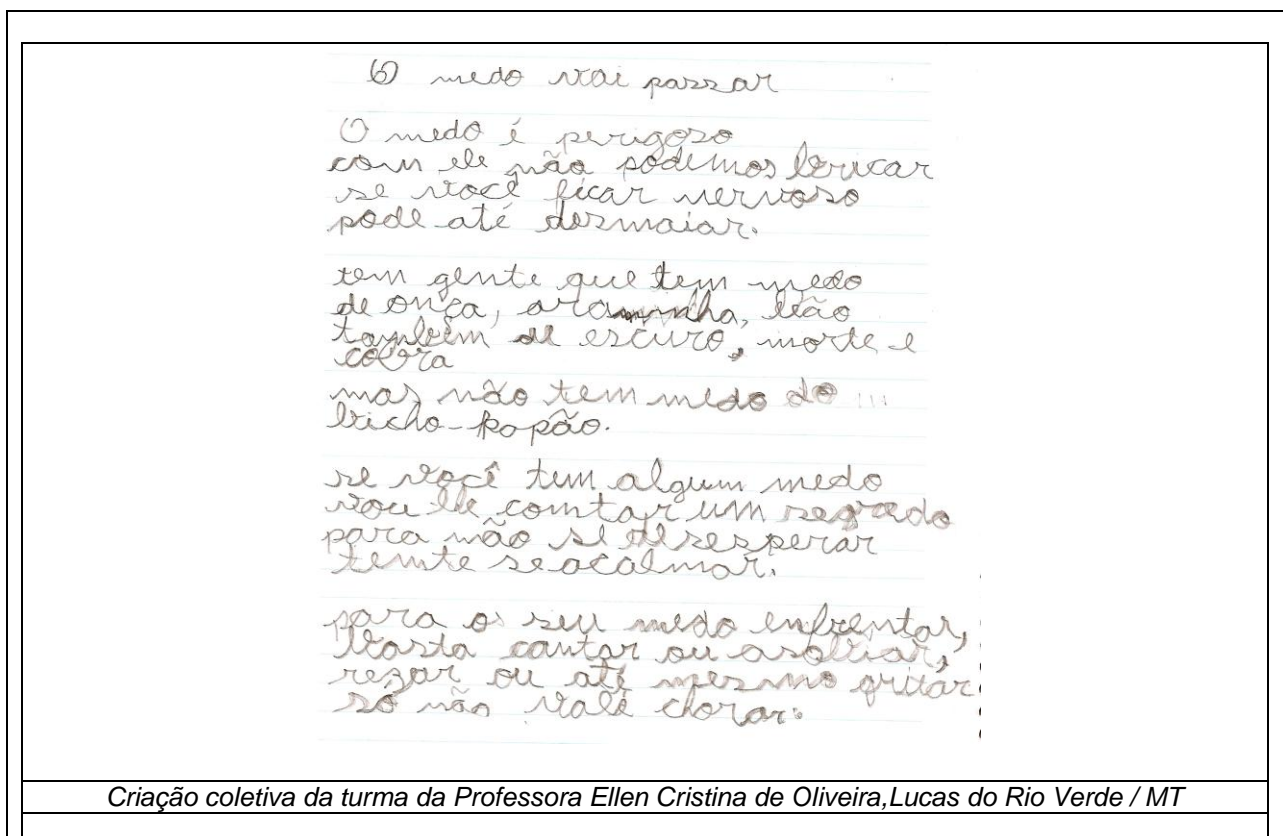 O medo vai passar
O medo é perigoso
com ele não podemos bricar
se você ficar nervoso
pode até desmaiar.
tem gente que tem medo
de onça, aramnha, leão
também de escuro, morte e
cobra
mas não tem medo do ...
bicho-papão.
se você tem algum medo
vou lhe comtar um segredo
para não se desesperar
temte se acalmar.
para o seu medo enfrentar,
basta cantar ou asobiar,
rezar ou até mesmo gritar
só não vale chorar.
Criação coletiva da turma da Professora Ellen Cristina de Oliveira,Lucas do Rio Verde / MT